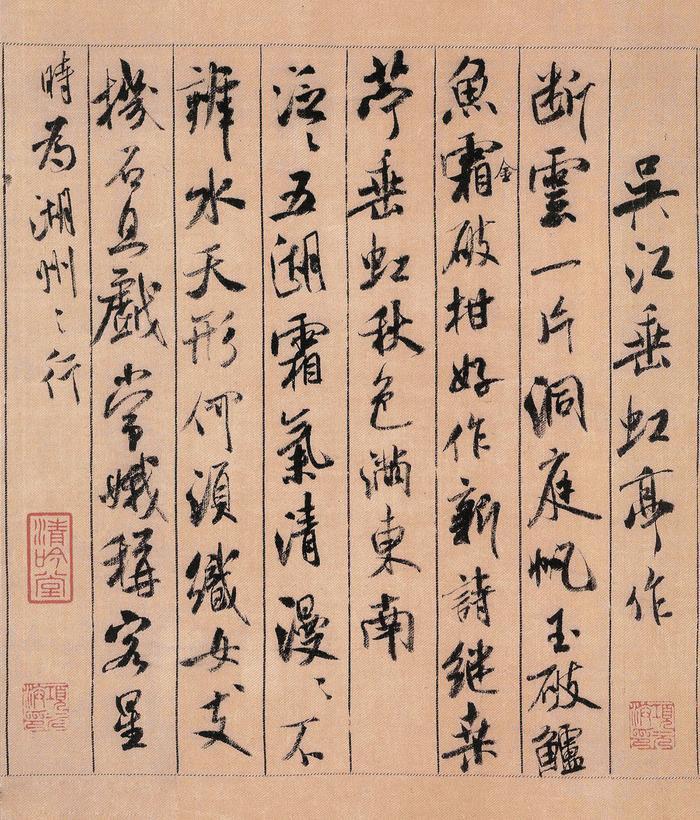 吳江垂虹亭作
断雲一片洞庭帆玉破鱸
魚霜破柑好作新詩継桒
金
苧垂虹秋色滿東南
泛〻五湖霜氣清漫〻不
辨水天形何須織女支
機石且戲常娥稱客星
時為湖州〻行
清吟堂
項元汴印
項元汴印